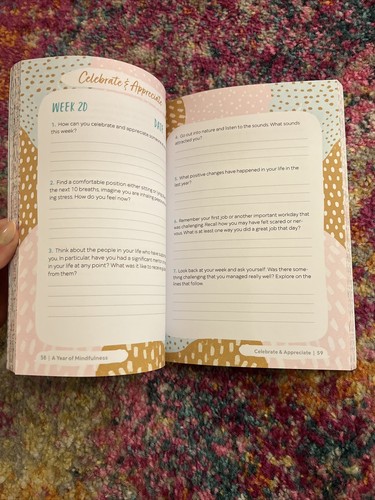 Celebrate & Apprecia
WEEK 20
DATE
1. How can you celebrate and appreciate
this week?
2. Find a comfortable position either sitting or
the next 10 breaths, imagine you are inhaling
ing stress. How do you feel now?
3. Think about the people in your life who have
you. In particular, have you had a significant
in your life at any point? What was it like to
from them?
58 | A Year of Mindfulness
4. Go out into nature and listen to the sounds. What sounds
attracted you?
5. What positive changes have happened in your life in the
last year?
6. Remember your first job or another important workday that
was challenging. Recall how you may have felt scared or ner-
vous. What is at least one way you did a great job that day?
7. Look back at your week and ask yourself: Was there some-
thing challenging that you managed really well? Explore on the
lines that follow.
Celebrate & Appreciate | 59